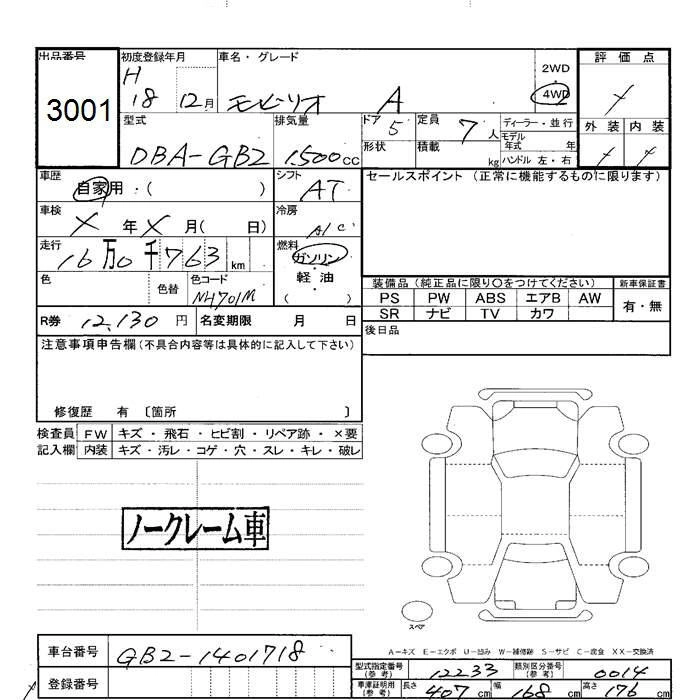 出品番号
3001
初度登録年月
H
18 12月
車名・グレード
モビリオ A
2WD
4WD
評価点
外装 内装
型式
DBA-GB2
排気量
1500cc
ドア
5
形状
定員
7人
積載
kg
ディーラー・並行
モデル
年式 年
ハンドル 左・右
車歴
自家用・( )
シフト
AT
車検
X年X月( 日)
冷房
A/C
走行
16万0千763km
燃料
ガソリン
軽油
( )
色
色替
色コード
NH701M
R券 12,130円
名変期限 月 日
セールスポイント (正常に機能するものに限ります)
装備品 (純正品に限り○をつけてください)
新車保証書
PS PW ABS エアB AW
SR ナビ TV カワ
有・無
後日品
注意事項申告欄(不具合内容等は具体的に記入して下さい)
修復歴 有 〔箇所 〕
検査員
記入欄
FW キズ・飛石・ヒビ割・リペア跡・×要
内装 キズ・汚レ・コゲ・穴・スレ・キレ・破レ
ノークレーム車
スペア
A-キズ E-エクボ U-凹み W-補修跡 S-サビ C-腐食 XX-交換済
車台番号 GB2-1401718
登録番号
型式指定番号
(参考)
12233
類別区分番号
(参考)
0014
車庫証明用
(参考)
長さ 407cm 幅 168cm 高さ 176cm